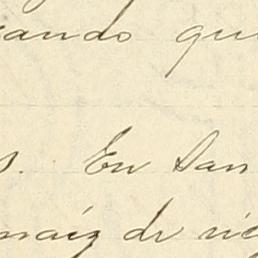 ando qu
s. En San
maiz de rie